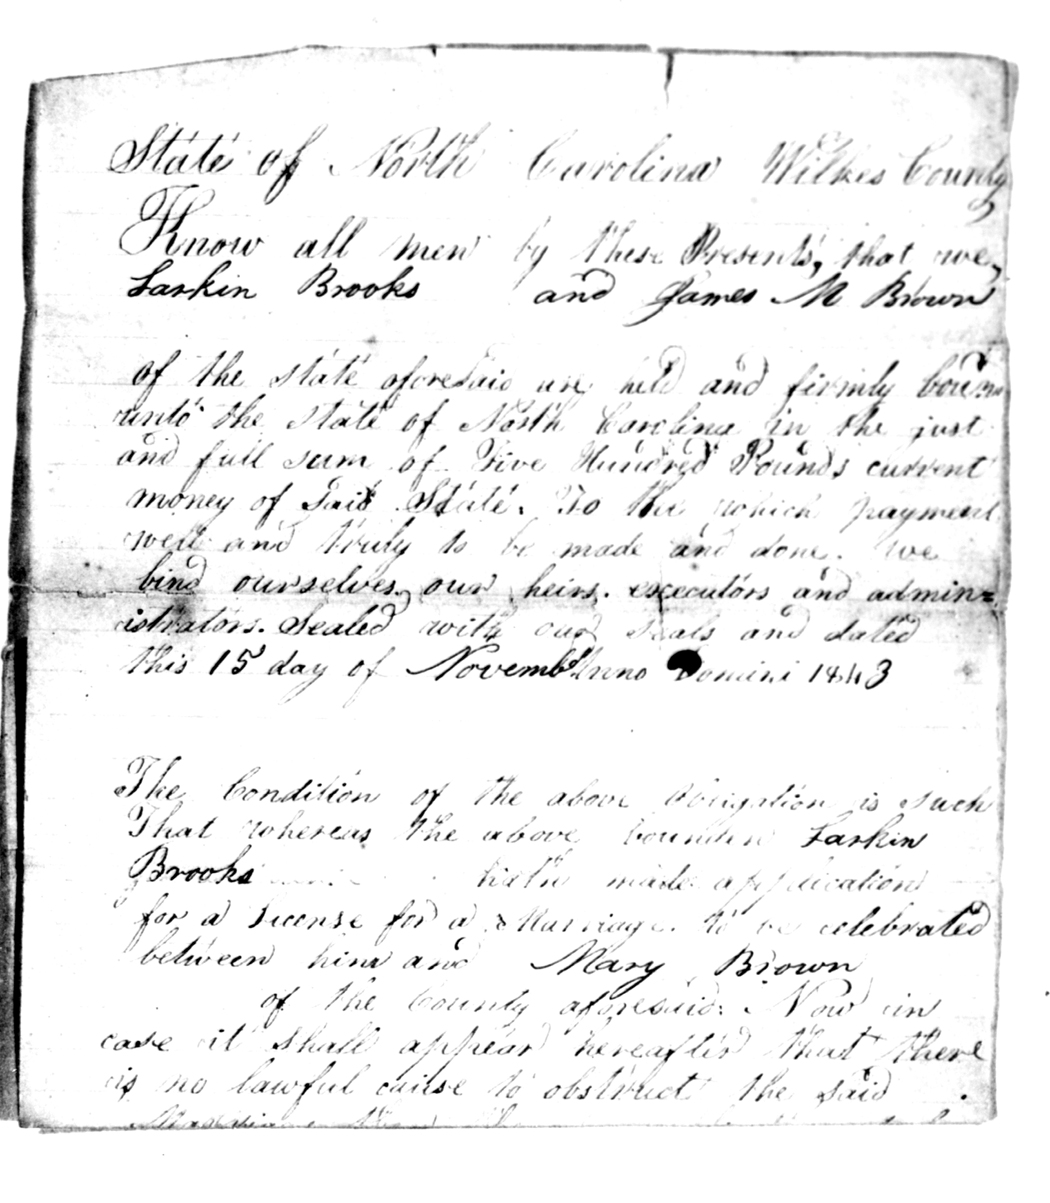 State of North Carolina Wilkes County
Know all men by these Presents, that we,
Larkin Brooks and James M Brown
of the state aforesaid are held and firmly boun
unto the state of North Carolina in the just
and full sum of Five Hundred Pounds current
money of said State. To the which payment
well and truly to be made and done. we
bind ourselves, our heirs. executors and admin=
istrators. Sealed with our seals and dated
this 15 day of Novembr Anno Domini 1843
The Condition of the above obligation is such
That whereas the above bounden Larkin
Brooks hath made application
for a License for a Marriage. to be celebrated
between him and Mary Brown
of the County aforesaid: Now in
case it shall appear hereafter that there
is no lawful cause to obstruct the said